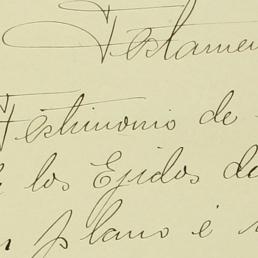 Testamen
Testimonio de
los Ejidos de
plano é